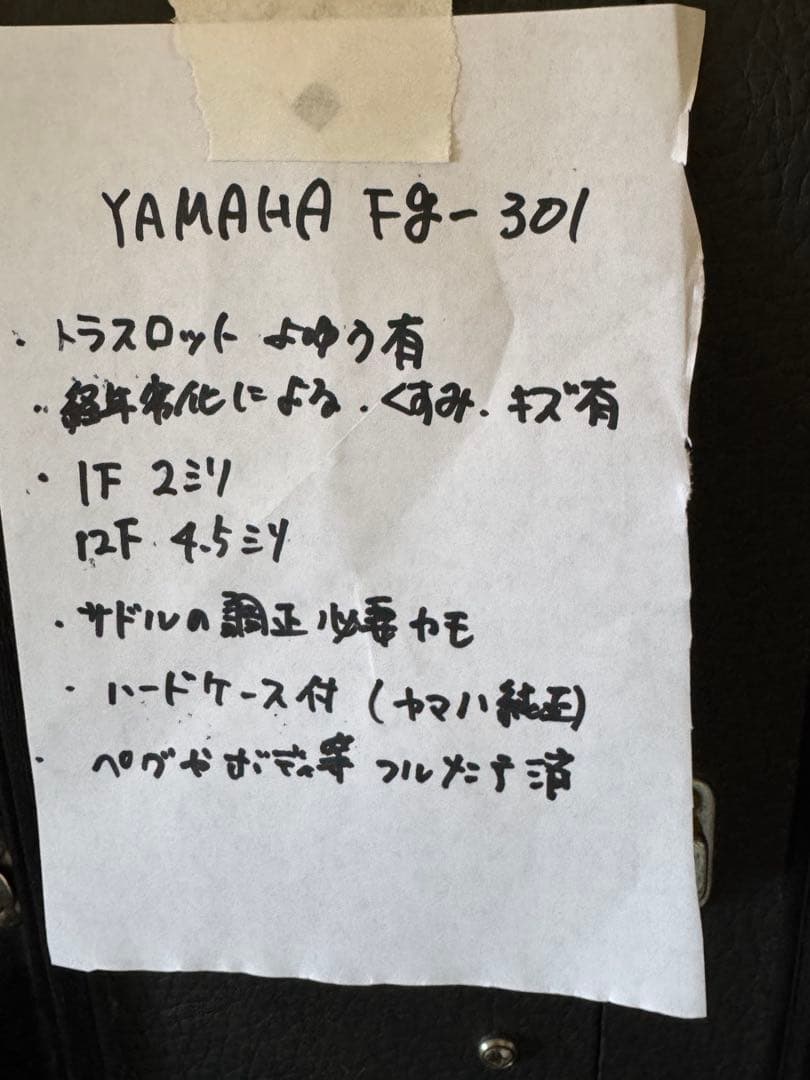 YAMAHA Fg-301
・トラスロット よゆう有
・経年劣化による.くすみ.キズ有
・1F 2ミリ
12F. 4.5ミリ
・サドルの調正必要カモ
・ハードケース付(ヤマハ純正)
・ペグやボディ等フルメンテ済